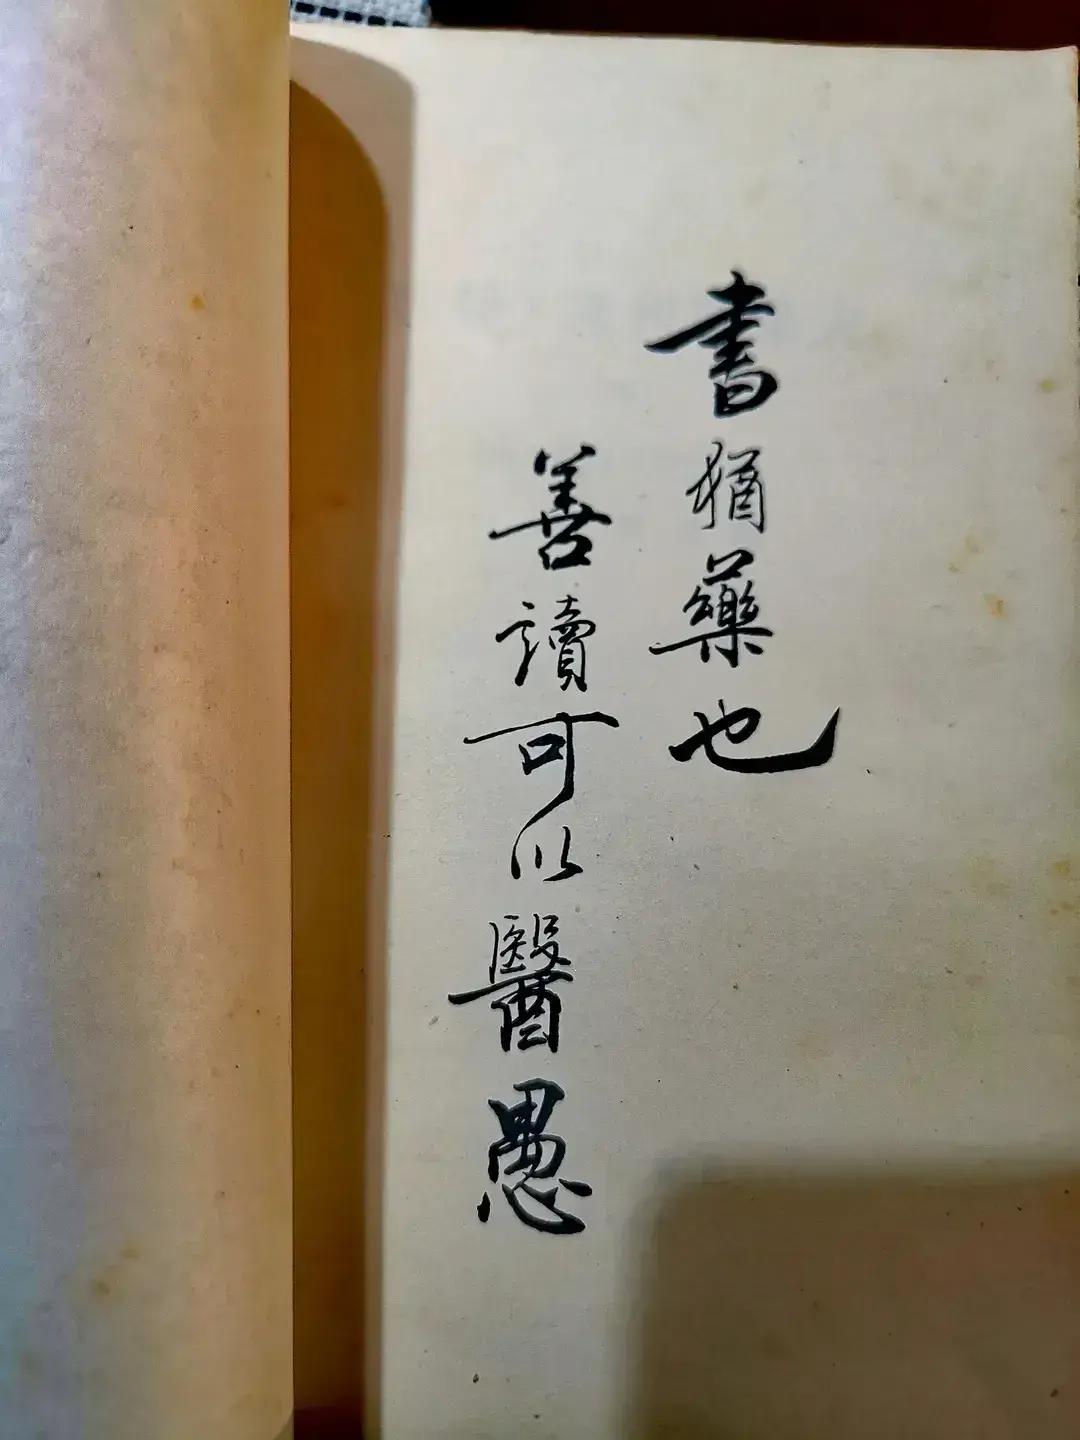 書猶藥也
善讀可以醫愚